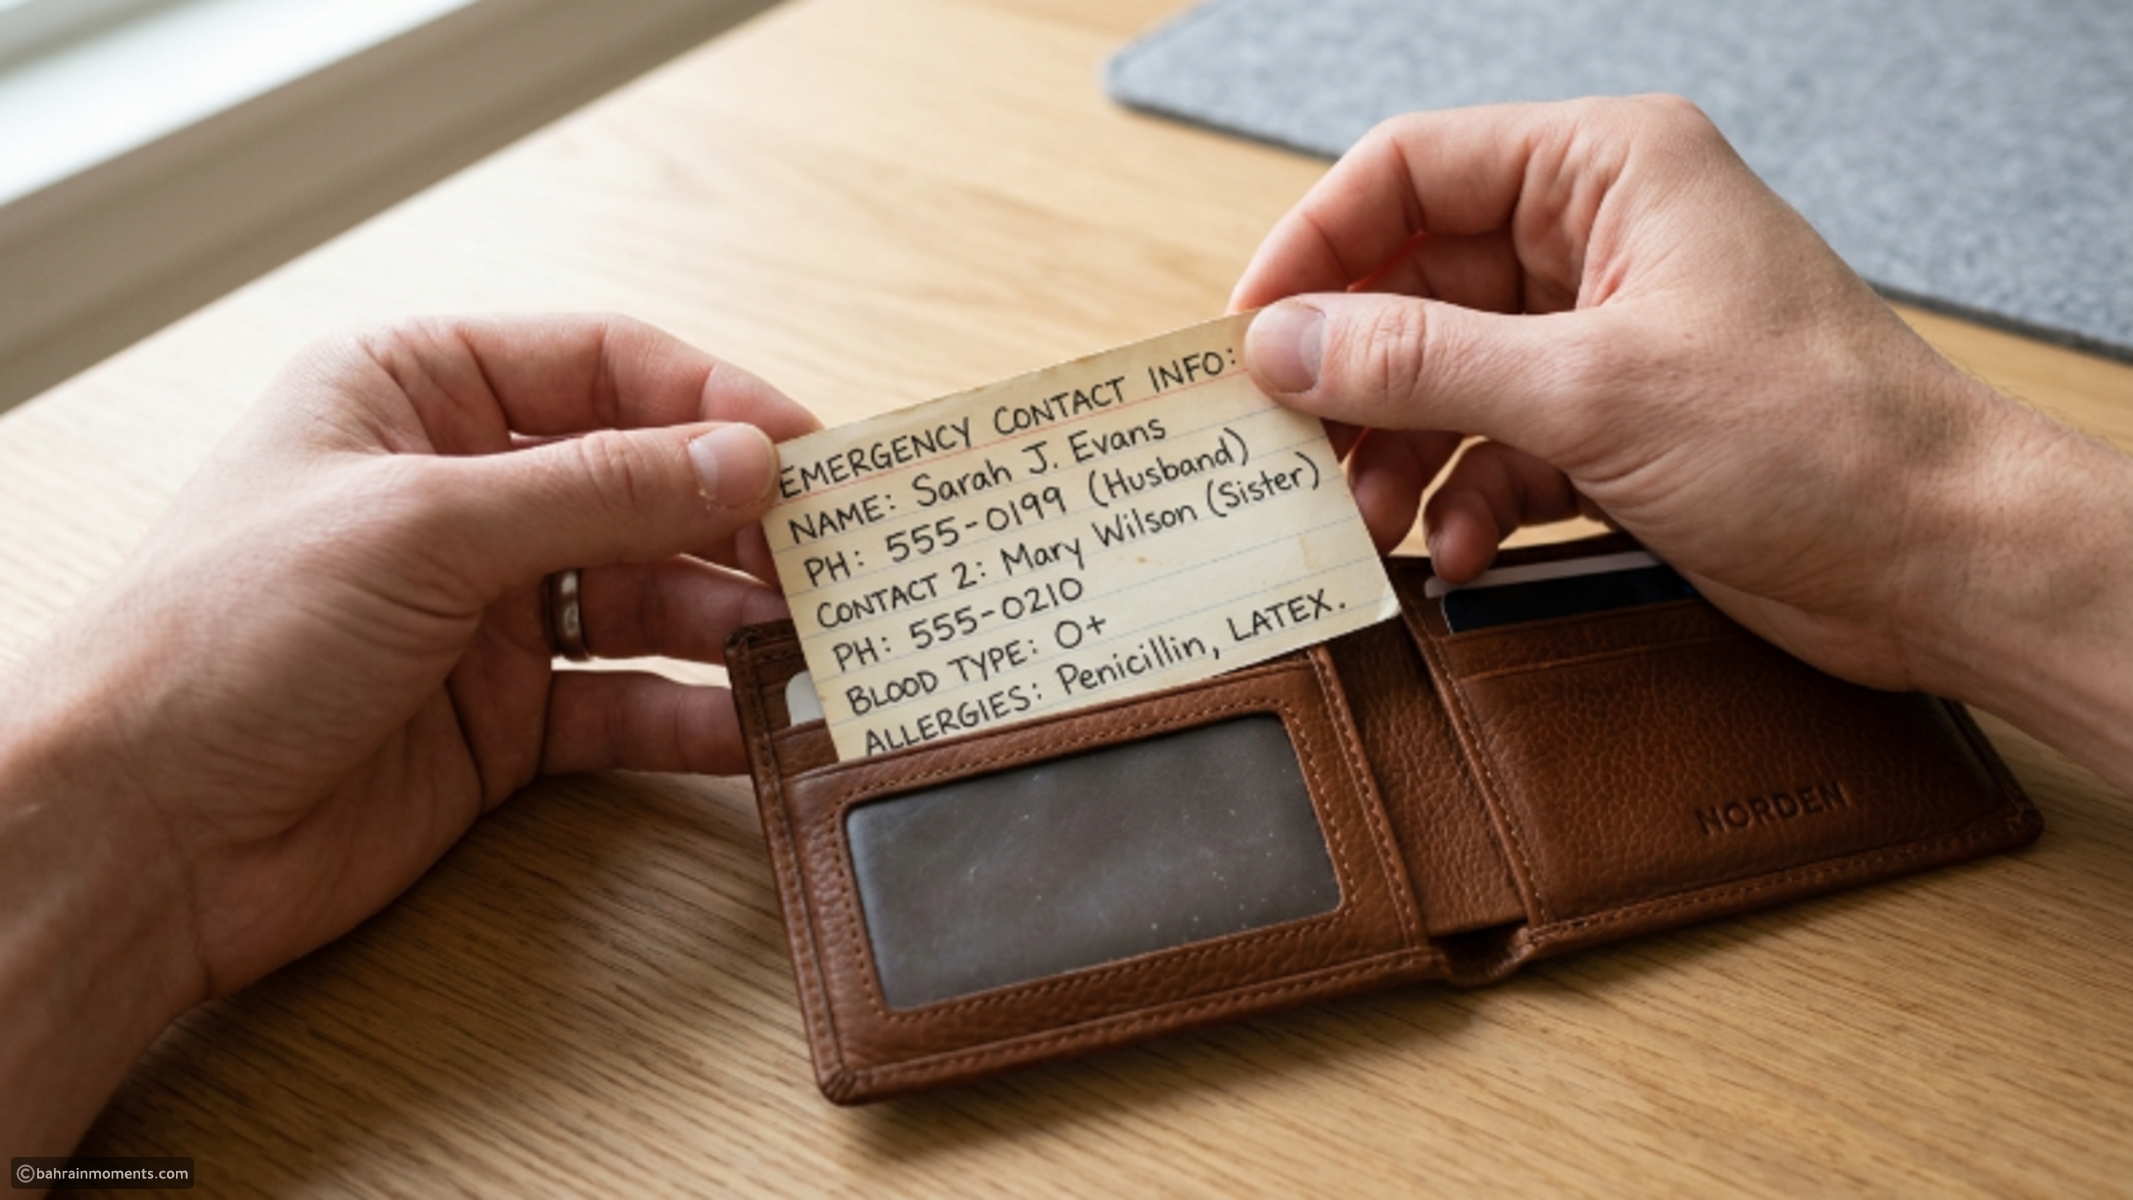 EMERGENCY CONTACT INFO:
NAME: Sarah J. Evans
PH: 555-0199 (Husband)
CONTACT 2: Mary Wilson (Sister)
PH: 555-0210
BLOOD TYPE: O+
ALLERGIES: Penicillin, LATEX.
NORDEN
©bahrainmoments.com